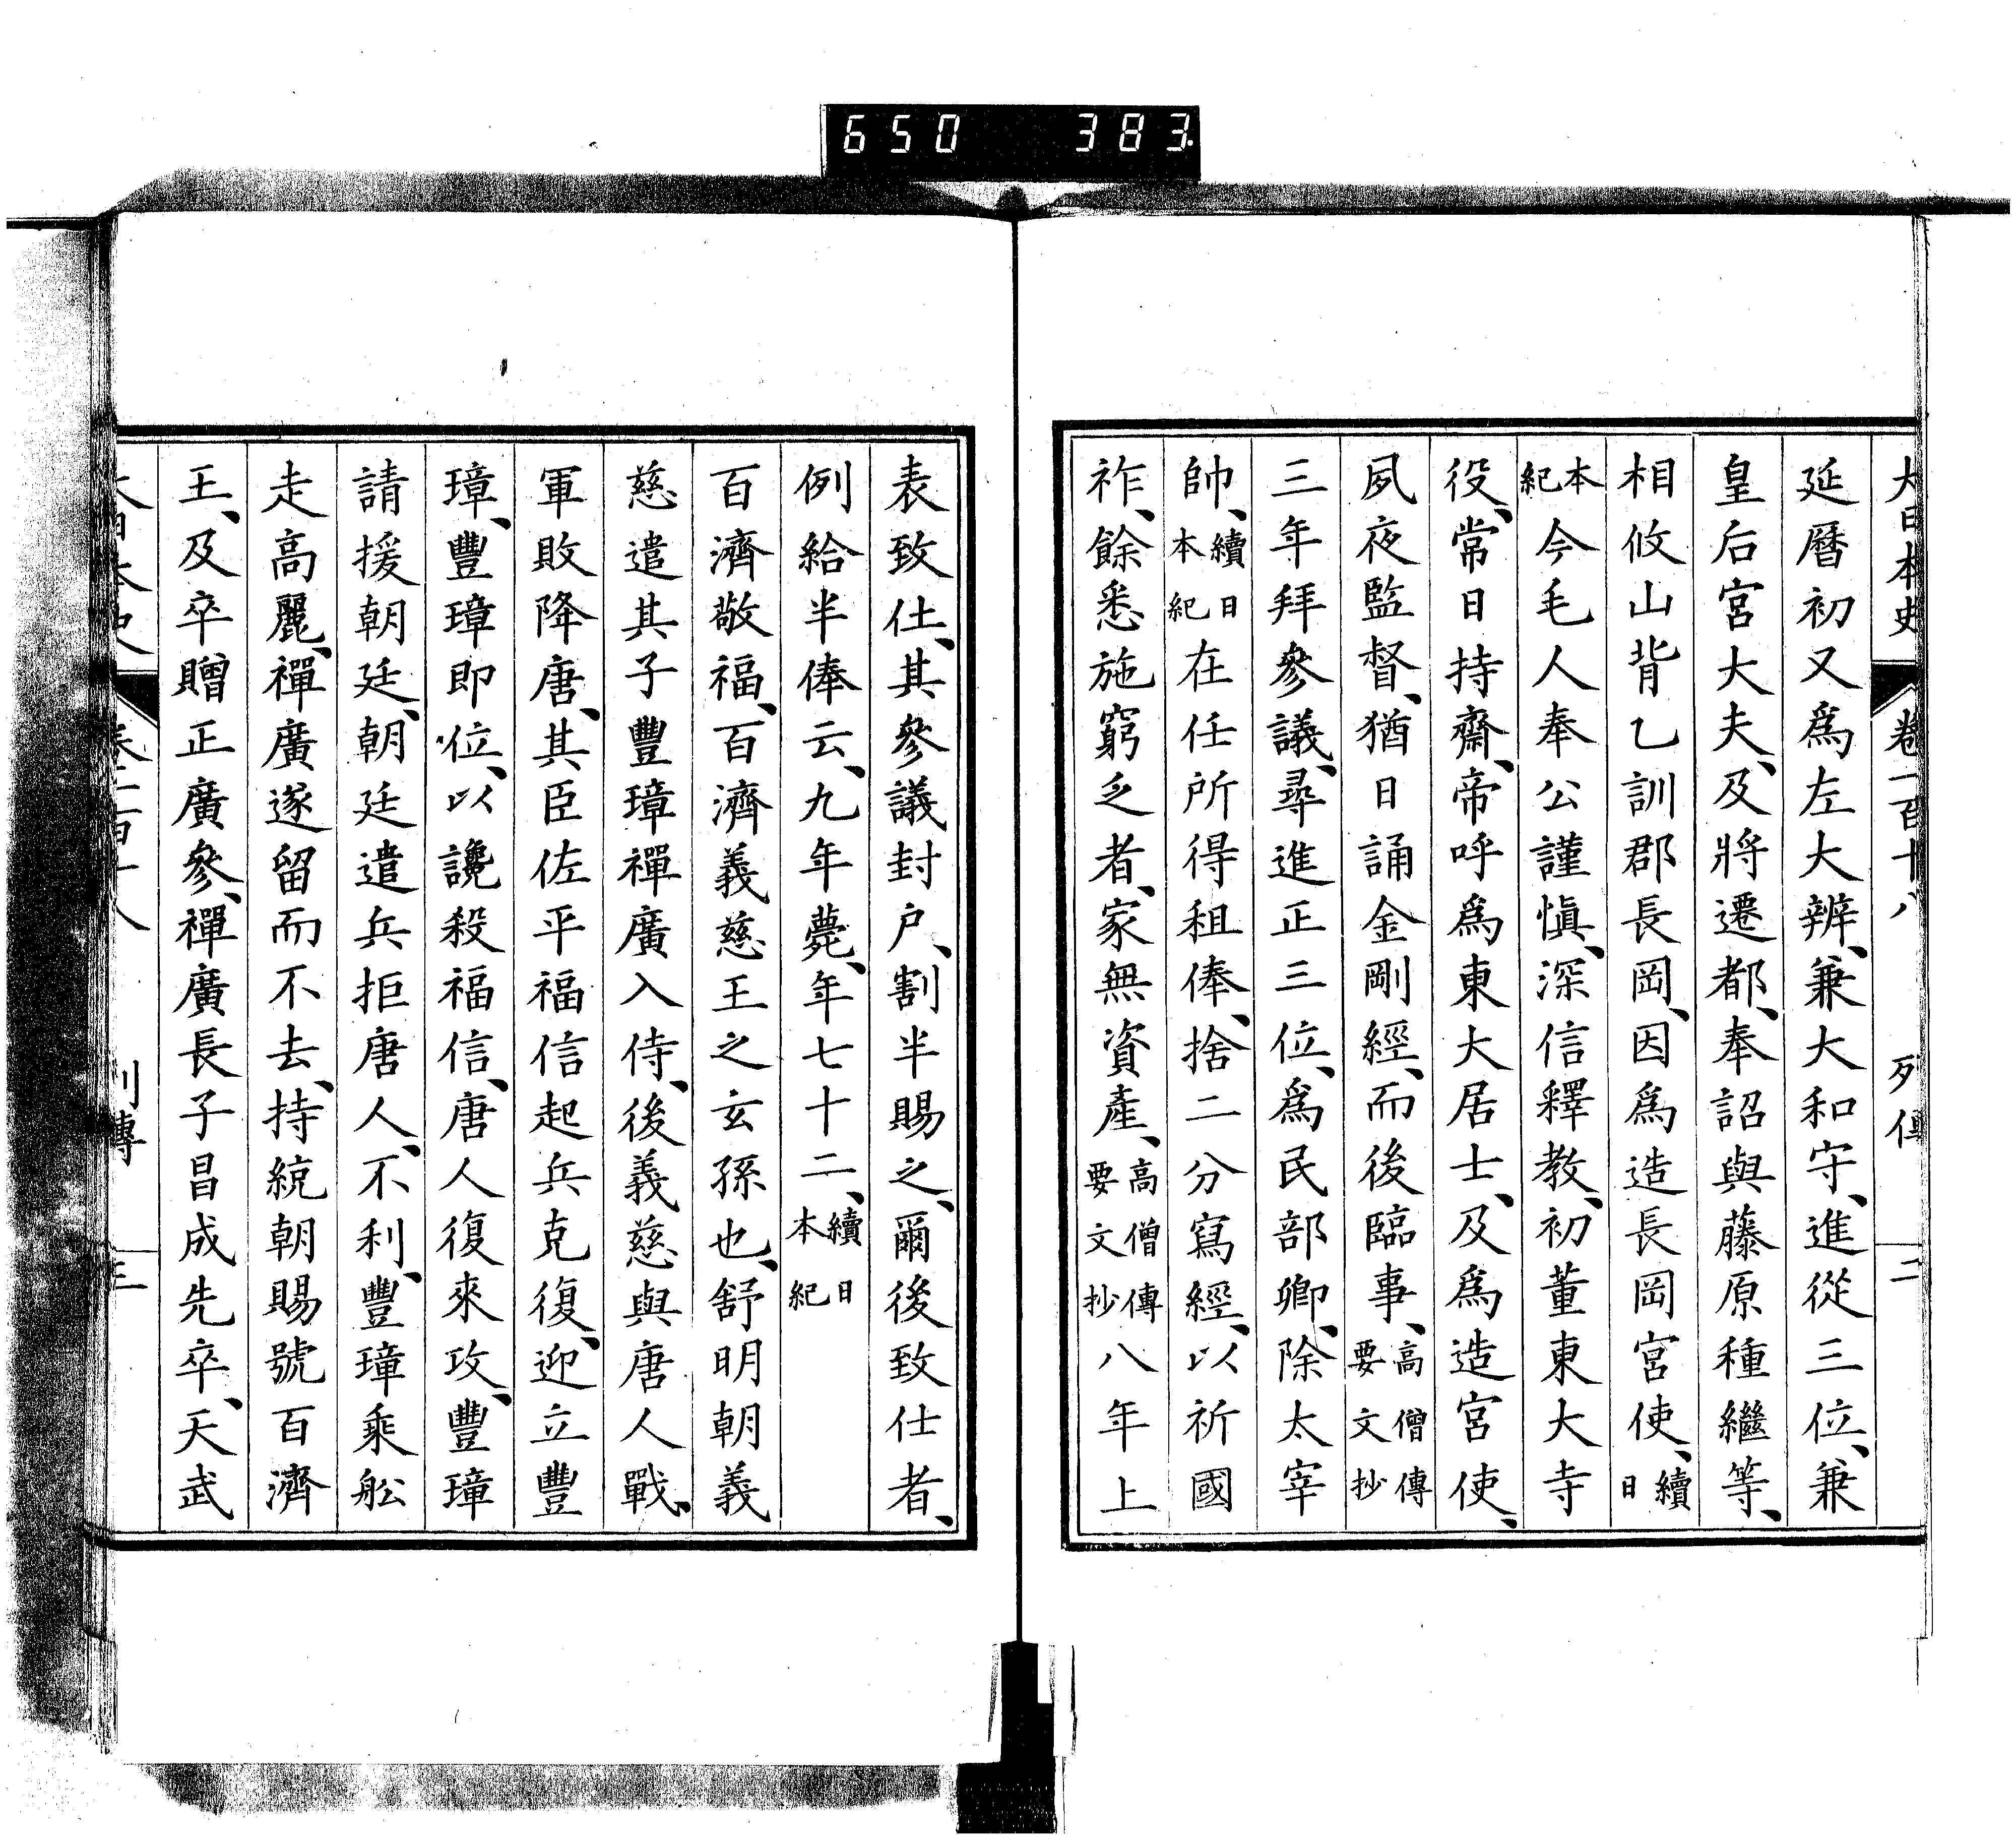 650 383.
大日本史 卷一百十八 列傳 二
延曆初又爲左大辨、兼大和守、進從三位、兼
皇后宮大夫、及將遷都、奉詔與藤原種繼等、
相攸山背乙訓郡長岡、因爲造長岡宮使、續日
本紀今毛人奉公謹愼、深信釋教、初董東大寺
役、常日持齋、帝呼爲東大居士、及爲造宮使、
夙夜監督、猶日誦金剛經、而後臨事、高僧傳要文抄
三年拜參議、尋進正三位、爲民部卿、除太宰
帥、續日本紀在任所得租俸、捨二分寫經、以祈國
祚、餘悉施窮乏者、家無資產、高僧傳要文抄八年上
表致仕、其參議封戶、割半賜之、爾後致仕者、
例給半俸云、九年薨、年七十二、續日本紀
百濟敬福、百濟義慈王之玄孫也、舒明朝義
慈遣其子豐璋禪廣入侍、後義慈與唐人戰、
軍敗降唐、其臣佐平福信起兵克復、迎立豐
璋、豐璋即位、以讒殺福信、唐人復來攻、豐璋
請援朝廷、朝廷遣兵拒唐人、不利、豐璋乘舩
走高麗、禪廣遂留而不去、持統朝賜號百濟
王、及卒贈正廣參、禪廣長子昌成先卒、天武
大日本史 卷一百十八 列傳 三